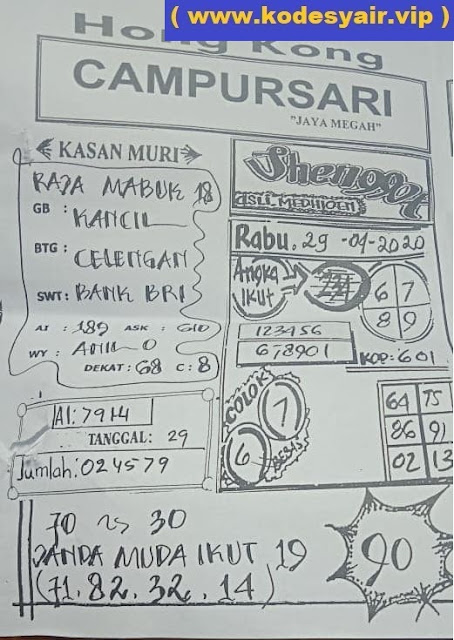 ( www.kodesyair.vip )
Hong Kong
CAMPURSARI
"JAYA MEGAH"
KASAN MURI
RAJA MABUK 18
GB : KANCIL
BTG : CELENGAN
SWT : BANK BRI
AI : 189 ASK : 610
WY : 0
DEKAT : 68 C : 8
AI : 7914
TANGGAL : 29
Jumlah : 024579
ASLI
Rabu . 29 -04-2020
Angka
IKUT
6 7
8 9
123456
678901
KOP : 601
COLOK
7
6
BEBAS
64 75
86 91
02 13
70 30
JANDA MUDA IKUT 19
(71. 82. 32. 14)
90